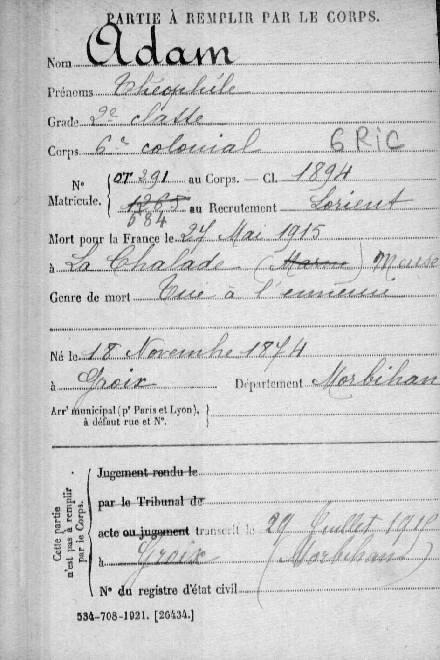 PARTIE À REMPLIR PAR LE CORPS.
Nom Adam
Prénoms Théophile
Grade 2e classe
Corps 6e colonial 6 RIC
N° Matricule. { OT 291 au Corps. — Cl. 1894
1285 584 au Recrutement Lorient
Mort pour la France le 27 Mai 1915
à La Chalade (Marne) Meuse
Genre de mort Tué à l'ennemi
Né le 18 Novembre 1874
à Groix Département Morbihan
Arrt municipal (pr Paris et Lyon), à défaut rue et N°. }
Cette partie n'est pas à remplir par le Corps.
Jugement rendu le
par le Tribunal de
acte ou jugement transcrit le 29 Juillet
à Groix (Morbihan)
N° du registre d'état civil
534-708-1921. [26434.]